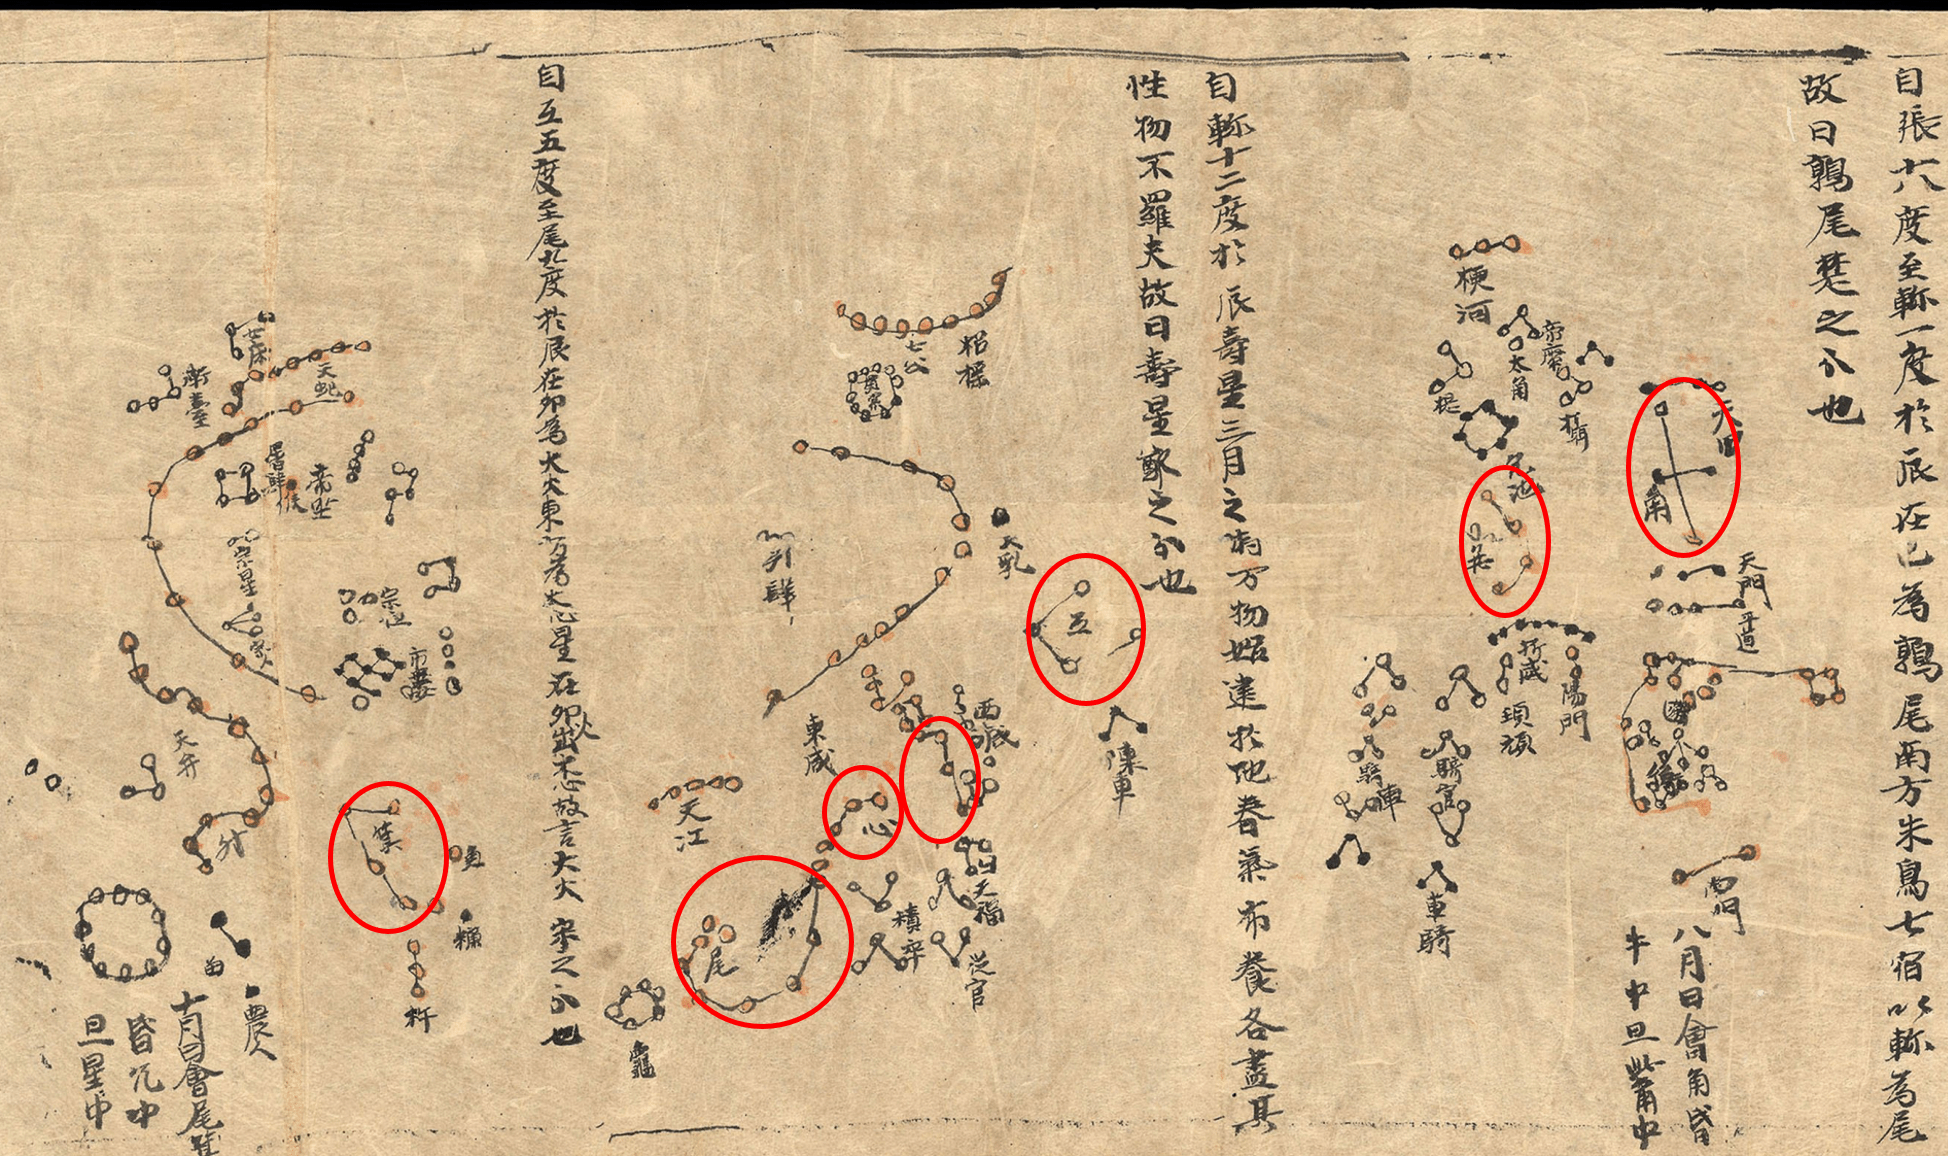 自張十八度至軫一度於辰在巳為鶉尾南方朱鳥七宿以軫為尾
故曰鶉尾楚之分也
天田
角
天門
平道
庫
南門
八月日會角昏
牛中旦觜中
帝席
攝
大角
梗河
亢池
亢
折威
陽門
頏頑
騎官
騎陣
車騎
自軫十二度於辰壽星三月之時万物始達於地春氣布養各盡其
性物不羅夭故曰壽星鄭之分也
招搖
七公
貫索
天乳
列肆
互
陳車
西咸
東咸
心
天江
天福
積卒
從官
尾
龜
自互五度至尾九度於辰在卯為大火東方為木心星在卯火出木心故言大火宋之分也
七床
天紀
漸臺
屠肆
帝坐
候
宗星
宗人
宗正
市樓
天弁
箕
魚
糠
杵
農人
十月日會尾
昏
中
旦星中